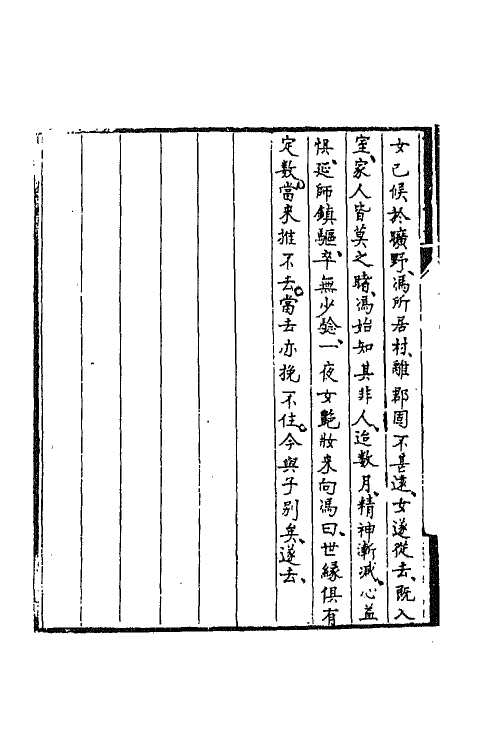 女已候於曠野、馮所居村、離郡固不甚遠、女遂從去、既入
室、家人皆莫之睹、馮始知其非人、迨數月、精神漸減、心益
惧、延師鎮驅、卒無少驗、一夜女艷妝来向馮曰、世緣俱有
定數、當来推不去。當去亦挽不住。今與子别矣、遂去、